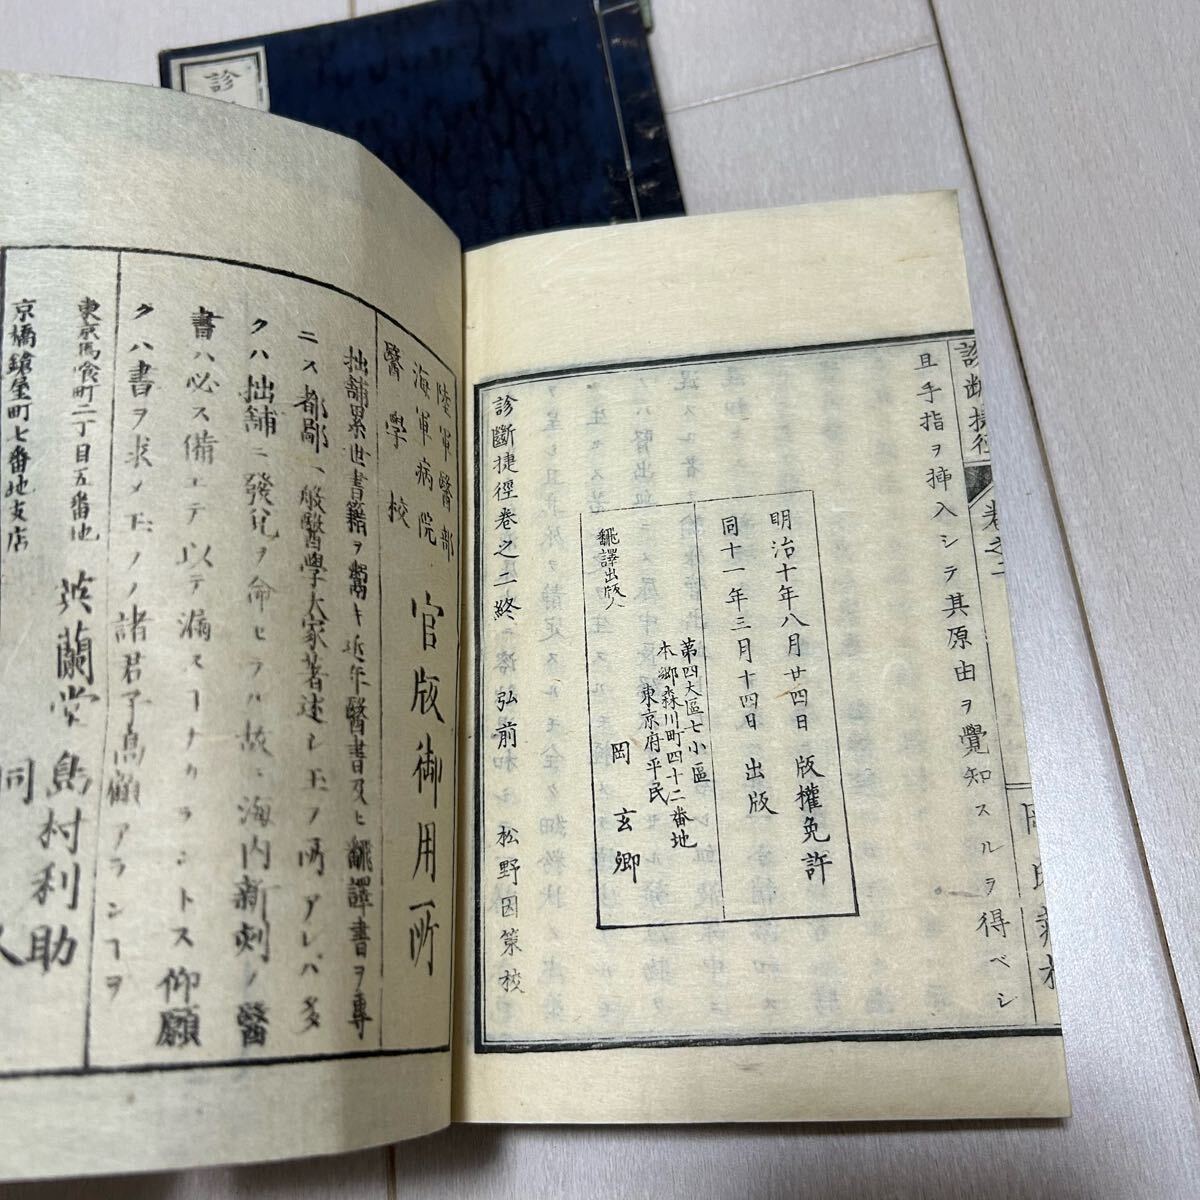 診
診断捷径
巻之二
且手指ヲ挿入シテ其原由ヲ覺知スルヲ得ベシ
明治十年八月廿四日 版權免許
同十一年三月十四日 出版
第四大區七小區
本郷森川町四十二番地
東京府平民
飜譯出版人
岡 玄卿
診斷捷徑巻之二終 弘前 松野因策校
陸軍醫部
海軍病院
醫學校
官版御用所
拙舗累世書籍ヲ鬻キ近年醫書及ヒ飜譯書ヲ專
ニス都鄙一般醫學大家著述シ玉フ所アレバ多
クハ拙舗ニ發兌ヲ命セラル故ニ海内新刻ノ醫
書ハ必ス備エテ以テ漏スヿナカランヿトス仰願
クハ書ヲ求メ玉フノ諸君子高顧アランヿヲ
東京馬喰町二丁目五番地
英蘭堂島村利助
京橋鎗屋町七番地支店
同